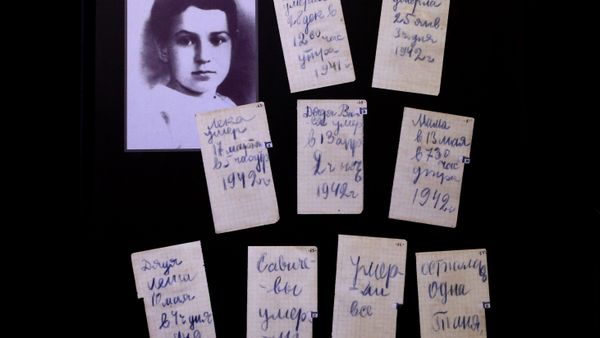 умерла
28 дек в
12 00 час
утра
1941 г
умерла
25 янв
3 ч дня
1942 г
Лека
умер
17 марта
в 5 час утр
1942 г
Дядя Ва
ся умер
в 13 апр
2 ч ноч
1942 г
Мама
в 13 мая
в 7 30
час
утра
1942 г
Дядя
Леша
10 мая
в 4 ч дня
Савиче-
вы
умер
Умер
ли
все
осталась
одна
Таня